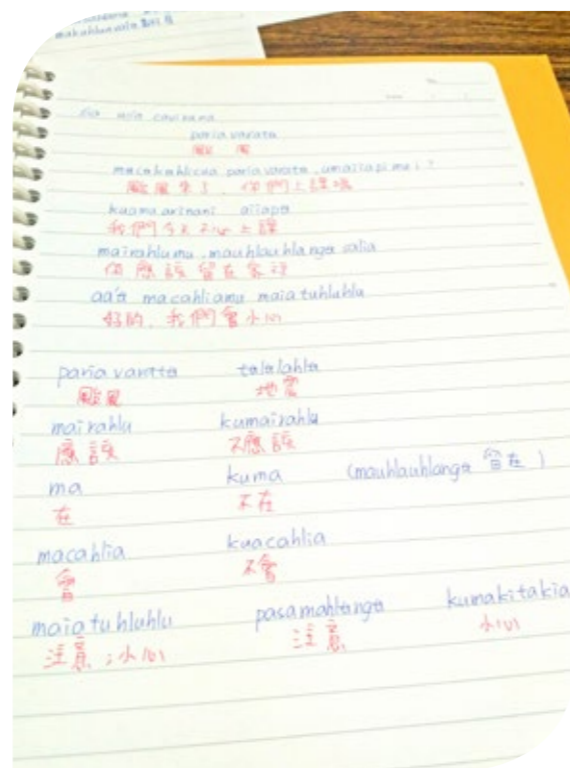 paria varata
颱風
macakahlicua paria varata , umaiiapimui ?
颱風來了, 你們上課嗎
kuama arinani aiiapɨ
我們今天不必上課
mairahlumu , mauhlauhlangɨ salia
你應該留在家裡
aa'ɨ macahliamu maiatuhluhlu
好的, 我們會小心
paria varatɨ talalahlɨ
颱風 地震
mairahlu kumairahlu
應該 不應該
ma kuma (mauhlauhlangɨ 留在 )
在 不在
macahlia kuacahlia
會 不會
maiatuhluhlu pasamahlɨngɨ kumakitakia
注意;小心 注意 小心